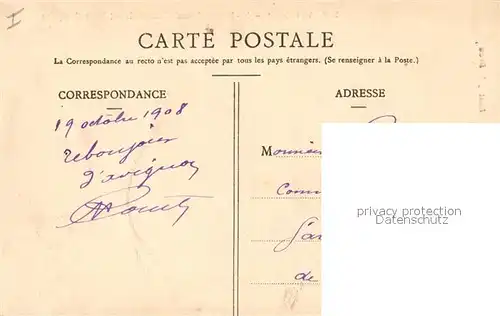 I
CARTE POSTALE
La Correspondance au recto n'est pas acceptée par tous les pays étrangers. (Se renseigner à la Poste.)
CORRESPONDANCE
ADRESSE
19 octobre 1908
rebonjour
d'avignon
M
de
privacy protection
Datenschutz